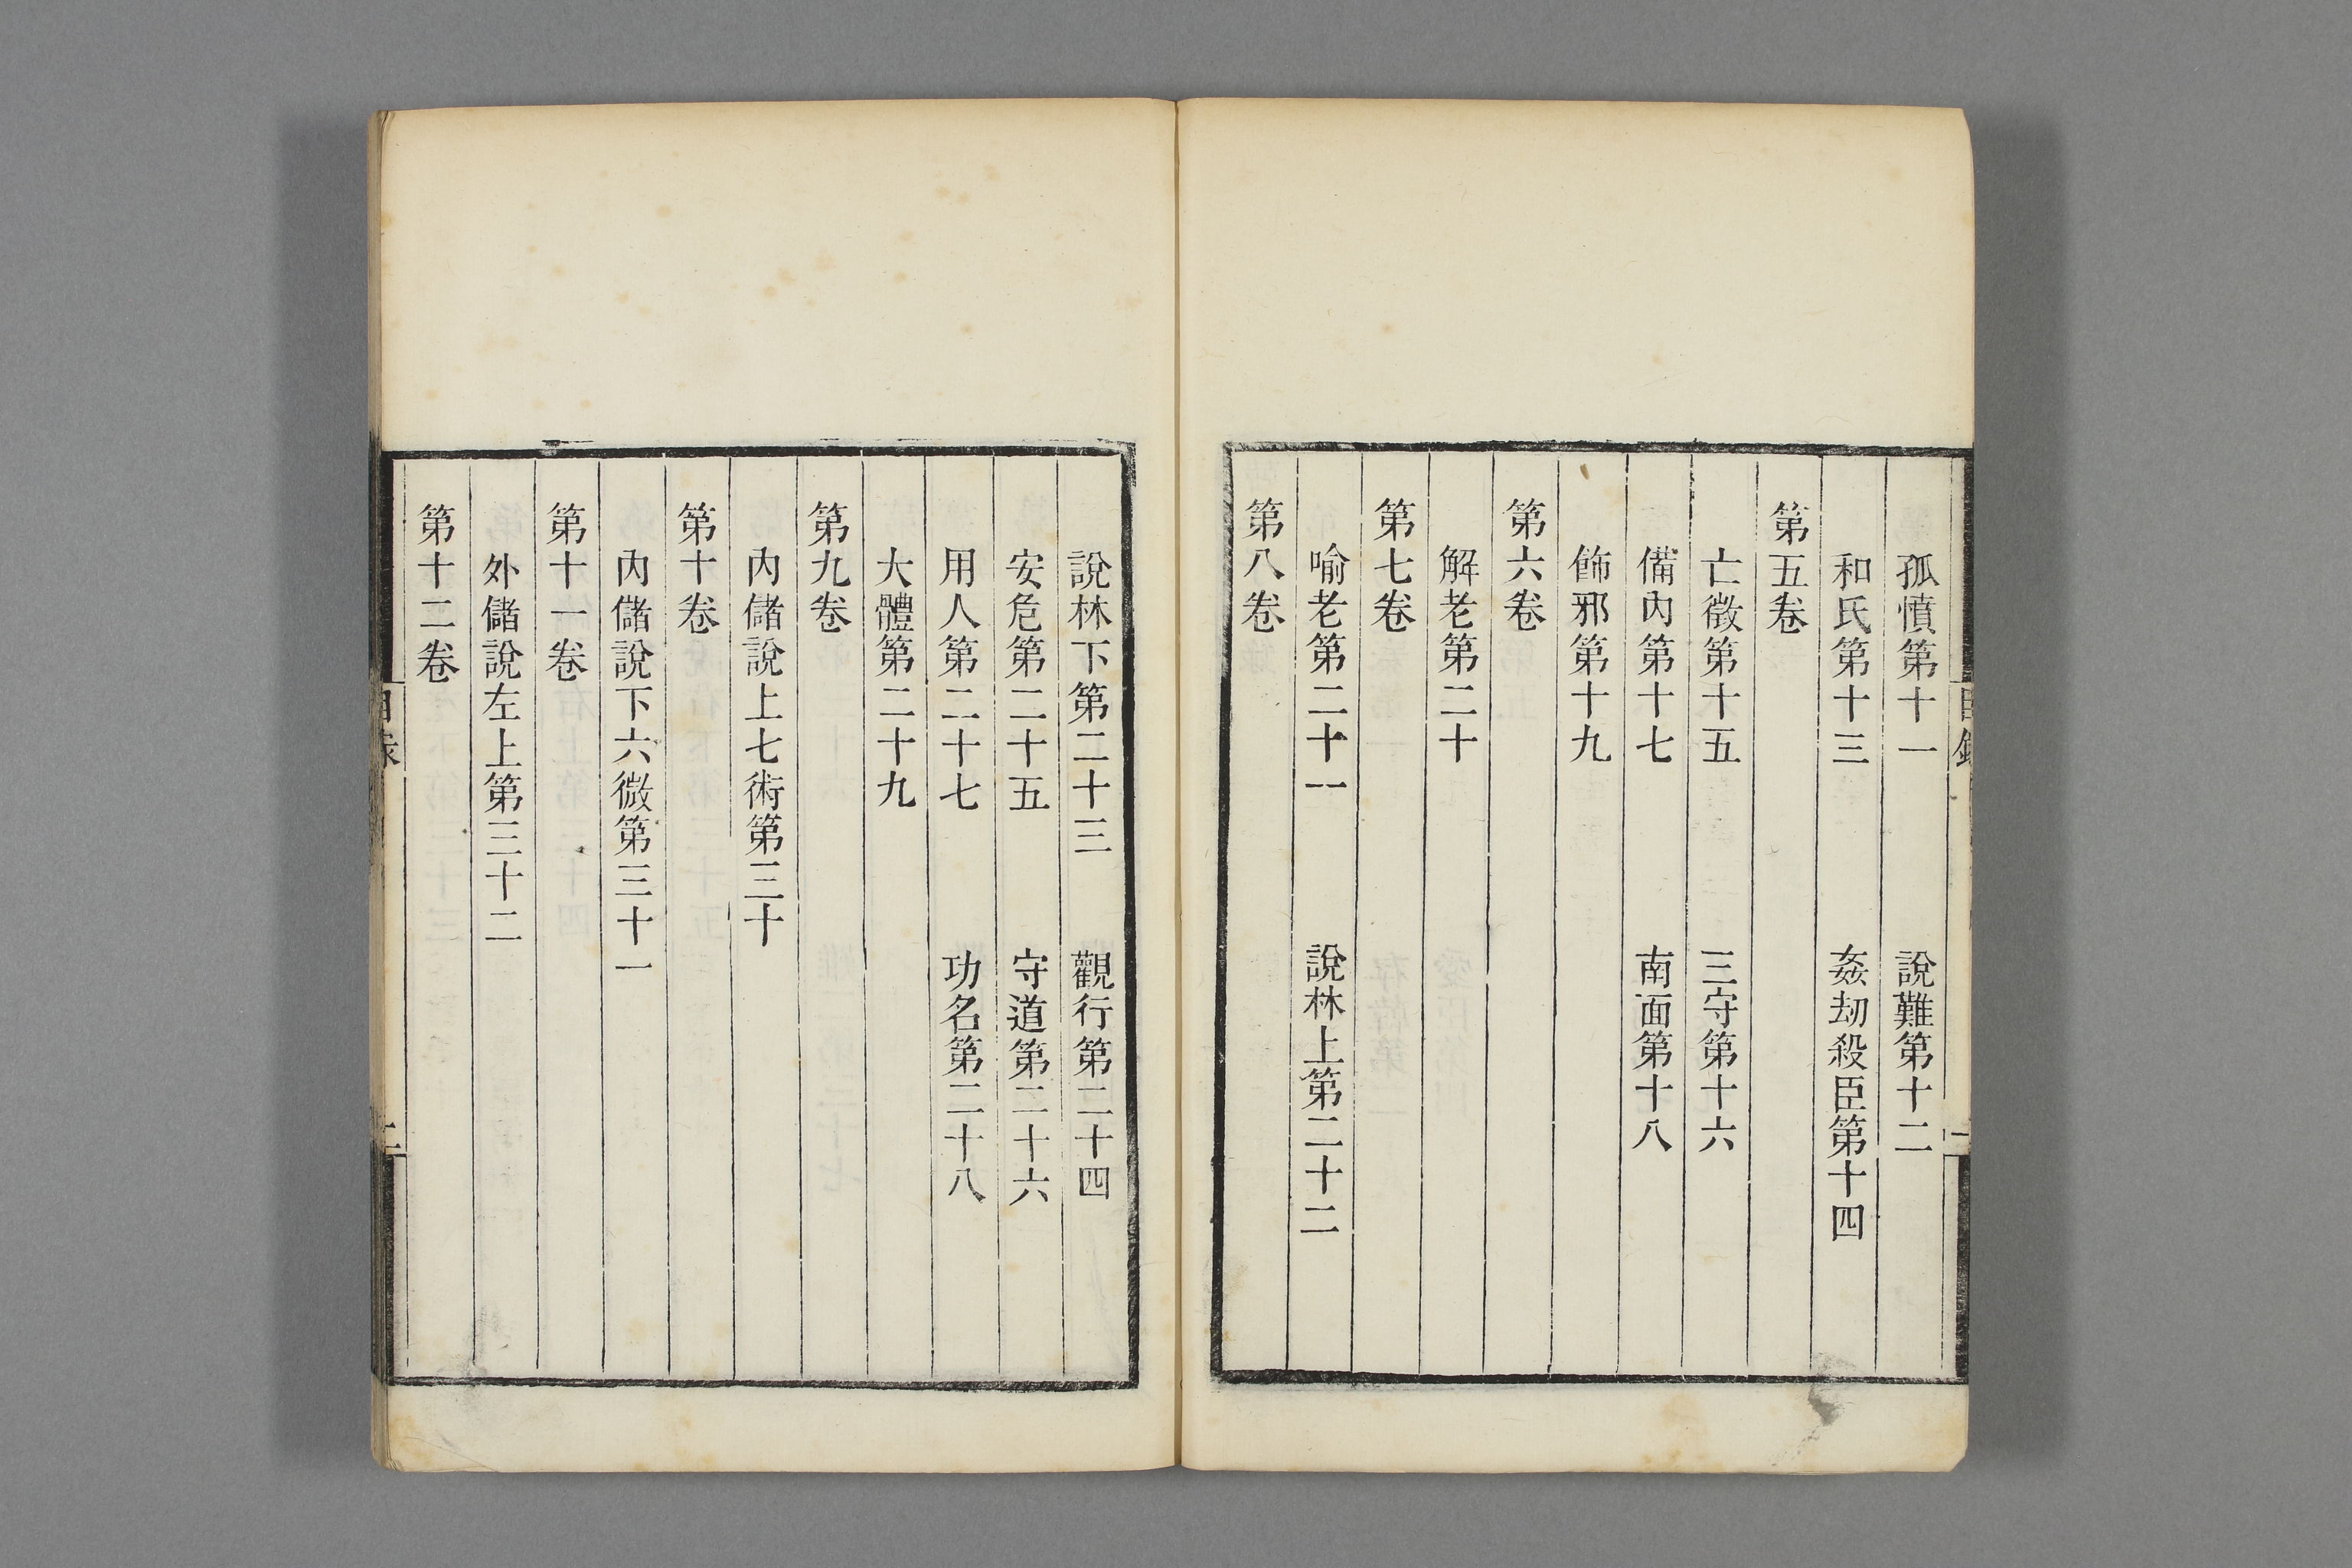 孤憤第十一　說難第十二
和氏第十三　姦劫殺臣第十四
第五卷
亡徵第十五　三守第十六
備內第十七　南面第十八
飾邪第十九
第六卷
解老第二十
第七卷
喻老第二十一　說林上第二十二
第八卷
說林下第二十三　觀行第二十四
安危第二十五　守道第二十六
用人第二十七　功名第二十八
大體第二十九
第九卷
內儲說上七術第三十
第十卷
內儲說下六微第三十一
第十一卷
外儲說左上第三十二
第十二卷